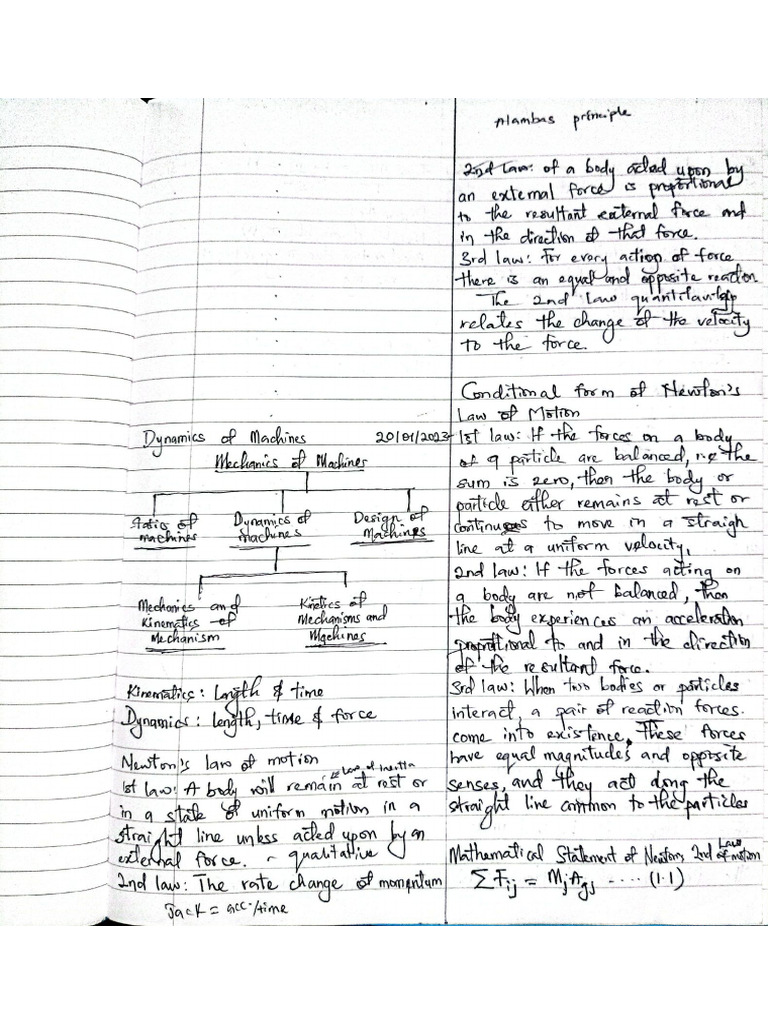 Dynamics of Machines 20/01/2023
Mechanics of Machines
Statics of machines
Dynamics of machines
Design of Machines
Mechanics and Kinematics of Mechanism
Kinetics of Mechanisms and Machines
Kinematics: Length & time
Dynamics: length, time & force
Newton's law of motion
Law of Inertia
1st law: A body will remain at rest or
in a state of uniform motion in a
straight line unless acted upon by an
external force. - qualitative
2nd law: The rate change of momentum
Jack = acc./time
Alambas principle
2nd law: of a body acted upon by
an external force is proportional
to the resultant external force and
in the direction of that force.
3rd law: For every action of force
there is an equal and opposite reaction
The 2nd law
relates the change of the velocity
to the force.
Conditional form of Newton's
Law of Motion
1st law: If the forces on a body
of a particle are balanced, i.e the
sum is zero, then the body or
particle either remains at rest or
continues to move in a straigh
line at a uniform velocity,
2nd law: If the forces acting on
a body are not balanced, then
the body experiences an acceleration
proportional to and in the direction
of the resultant force.
3rd law: When two bodies or particles
interact, a pair of reaction forces.
come into existence. These forces
have equal magnitudes and opposite
senses, and they act along the
straight line common to the particles
Mathematical Statement of Newtons 2nd Law of motion
ΣFij = MjAGj .... (1.1)